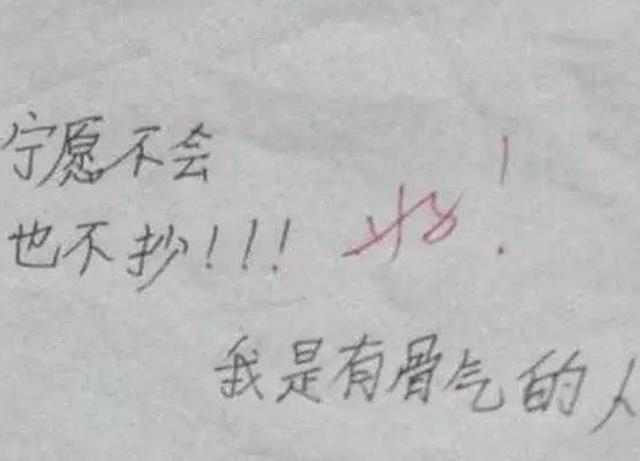 宁愿不会
也不抄!!!
好!
我是有骨气的人